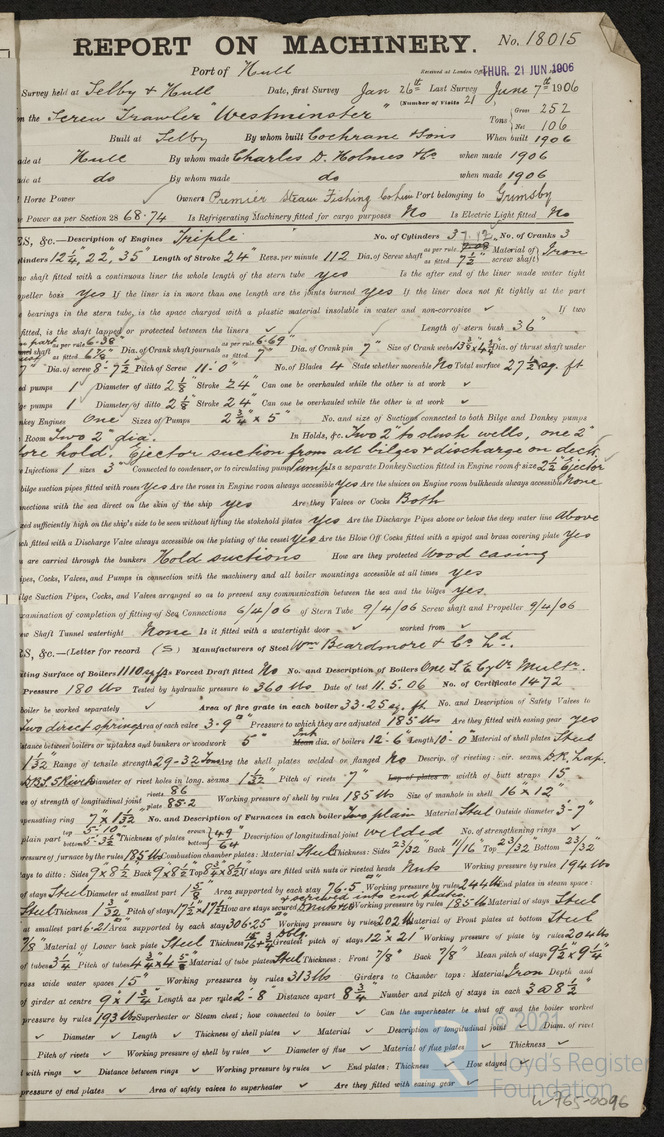 REPORT ON MACHINERY. No. 18015
Port of Hull Received at London Office THUR. 21 JUN 1906
Survey held at Selby & Hull Date, first Survey Jan 26th Last Survey June 7th 1906
(Number of Visits 21)
on the Screw Trawler "Westminster" Tons Gross 252 Net 106
Built at Selby By whom built Cochrane & Sons When built 1906
made at Hull By whom made Charles D. Holmes & Co when made 1906
made at do By whom made do when made 1906
Horse Power Owners Premier Steam Fishing Port belonging to Grimsby
Power as per Section 28 68.74 Is Refrigerating Machinery fitted for cargo purposes No Is Electric Light fitted No
RS, &c.—Description of Engines Triple No. of Cylinders 3 No. of Cranks 3
Cylinders 12 1/4", 22", 35" Length of Stroke 24" Revs. per minute 112 Dia. of Screw shaft as per rule 7.12 as fitted 7 1/2" Material of screw shaft Iron
screw shaft fitted with a continuous liner the whole length of the stern tube yes Is the after end of the liner made water tight
propeller boss yes If the liner is in more than one length are the joints burned yes If the liner does not fit tightly at the part
bearings in the stern tube, is the space charged with a plastic material insoluble in water and non-corrosive ✓ If two
fitted, is the shaft lapped or protected between the liners ✓ Length of stern bush 36"
shaft as per rule 6.38" as fitted 6 7/8" Dia. of Crank shaft journals as per rule 6.69" as fitted 7" Dia. of Crank pin 7" Size of Crank webs 13 3/8" x 4 3/4" Dia. of thrust shaft under
7" Dia. of screw 8'-7 1/2" Pitch of Screw 11'-0" No. of Blades 4 State whether moveable No Total surface 27 1/2 sq. ft
pumps 1 Diameter of ditto 2 1/8" Stroke 24" Can one be overhauled while the other is at work ✓
pumps 1 Diameter of ditto 2 1/8" Stroke 24" Can one be overhauled while the other is at work ✓
Donkey Engines One Sizes of Pumps 2 3/4" x 5" No. and size of Suctions connected to both Bilge and Donkey pumps
Room Two 2" dia. In Holds, &c. Two 2" to slush wells, one 2"
fore hold. Ejector suction from all bilges & discharge on deck.
Injections 1 sizes 3" Connected to condenser, or to circulating pump Pump Is a separate Donkey Suction fitted in Engine room & size 2 1/2" Ejector
bilge suction pipes fitted with roses Yes Are the roses in Engine room always accessible Yes Are the sluices on Engine room bulkheads always accessible None
connections with the sea direct on the skin of the ship yes Are they Valves or Cocks Both
fixed sufficiently high on the ship's side to be seen without lifting the stokehold plates yes Are the Discharge Pipes above or below the deep water line above
each fitted with a Discharge Valve always accessible on the plating of the vessel Yes Are the Blow Off Cocks fitted with a spigot and brass covering plate Yes
are carried through the bunkers Hold suctions How are they protected Wood casing
Pipes, Cocks, Valves, and Pumps in connection with the machinery and all boiler mountings accessible at all times yes
Bilge Suction Pipes, Cocks, and Valves arranged so as to prevent any communication between the sea and the bilges yes.
examination of completion of fitting of Sea Connections 6/4/06 of Stern Tube 9/4/06 Screw shaft and Propeller 9/4/06
Screw Shaft Tunnel watertight None Is it fitted with a watertight door ✓ worked from ✓
RS, &c.—(Letter for record (S) Manufacturers of Steel Wm Beardmore & Co Ld.
Heating Surface of Boilers 1110 sq ft Is Forced Draft fitted No No. and Description of Boilers One S.E. Cylr. Multr.
Pressure 180 lbs Tested by hydraulic pressure to 360 lbs Date of test 11.5.06 No. of Certificate 1472
boiler be worked separately ✓ Area of fire grate in each boiler 33.25 sq. ft No. and Description of Safety Valves to
Two direct spring Area of each valve 3.9" Pressure to which they are adjusted 185 lbs Are they fitted with easing gear yes
distance between boilers or uptakes and bunkers or woodwork 5" Mean dia. of boilers 12'-6" Length 10'-0" Material of shell plates Steel
1 1/32" Range of tensile strength 29-32 Tons Are the shell plates welded or flanged No Descrip. of riveting: cir. seams DR. Lap.
DBS 5 Rivets Diameter of rivet holes in long. seams 1 1/32" Pitch of rivets 7" Lap of plates or width of butt straps 15"
of strength of longitudinal joint rivets 86 plate 85.2 Working pressure of shell by rules 185 lbs Size of manhole in shell 16" x 12"
compensating ring 7 x 1 1/32 No. and Description of Furnaces in each boiler Two plain Material Steel Outside diameter 3'-7"
plain part top 5-10" bottom 5-3 1/2" Thickness of plates crown 49 bottom 64 Description of longitudinal joint welded No. of strengthening rings ✓
pressure of furnace by the rules 185 lbs Combustion chamber plates: Material Steel Thickness: Sides 23/32" Back 11/16" Top 23/32" Bottom 23/32"
stays to ditto: Sides 9 x 8 1/2 Back 9 x 8 1/2 Top 8 3/4 x 8 1/2 If stays are fitted with nuts or riveted heads Nuts Working pressure by rules 194 lbs
of stays Steel Diameter at smallest part 1 5/8 Area supported by each stay 76.5 Working pressure by rules 244 lbs End plates in steam space:
Steel Thickness 1 3/32" Pitch of stays 17 1/2" x 17 1/2" How are stays secured D nuts & W & screwed into end plates Working pressure by rules 185 lbs Material of stays Steel
at smallest part 6.21 Area supported by each stay 306.25" Working pressure by rules 202 lbs Material of Front plates at bottom Steel
7/8" Material of Lower back plate Steel Thickness Greatest pitch of stays 12" x 21" Working pressure of plate by rules 204 lbs
of tubes 3 1/4" Pitch of tubes 4 3/4" x 4 5/8" Material of tube plates Steel Thickness: Front 7/8" Back 7/8" Mean pitch of stays 9 1/2" x 9 1/4"
across wide water spaces 15" Working pressures by rules 313 lbs Girders to Chamber tops: Material Iron Depth and
of girder at centre 9" x 1 3/4" Length as per rule 2'-8" Distance apart 8 3/4" Number and pitch of stays in each 3 @ 8 1/2"
pressure by rules 193 lbs Superheater or Steam chest; how connected to boiler ✓ Can the superheater be shut off and the boiler worked
✓ Diameter ✓ Length ✓ Thickness of shell plates ✓ Material ✓ Description of longitudinal joint ✓ Diam. of rivet
Pitch of rivets ✓ Working pressure of shell by rules ✓ Diameter of flue ✓ Material of flue plates ✓ Thickness ✓
with rings ✓ Distance between rings ✓ Working pressure by rules ✓ End plates: Thickness ✓ How stayed ✓
pressure of end plates ✓ Area of safety valves to superheater ✓ Are they fitted with easing gear ✓
© 2021
Lloyd's Register
Foundation
W765-0096